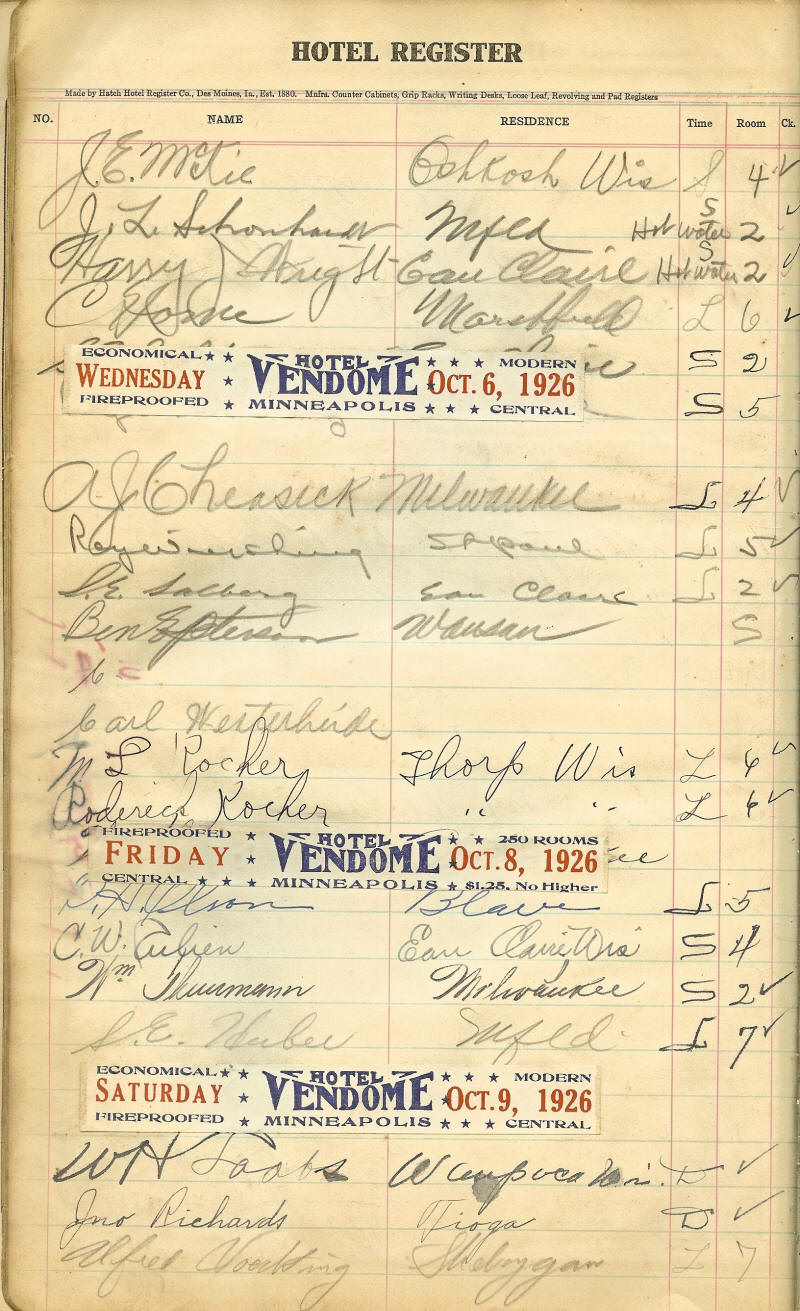 HOTEL REGISTER
Made by Hatch Hotel Register Co., Des Moines, Ia., Est. 1880. Mnfrs. Counter Cabinets, Grip Racks, Writing Desks, Loose Leaf, Revolving and Pad Registers
NO. NAME RESIDENCE Time Room Ck.
J. E. Oshkosh Wis S 4 ✓
J. L. Schonhardt Mfld Hot water S 2 ✓
Harry Wright Eau Claire Hot water S 2 ✓
C Horne Marshfield L 6 ✓
S 2
S 5
ECONOMICAL ★ ★ HOTEL ★ ★ ★ MODERN
WEDNESDAY ★ VENDOME OCT. 6, 1926
FIREPROOFED ★ MINNEAPOLIS ★ ★ ★ CENTRAL
A J Cheasick Milwaukee L 4 ✓
Ray St paul L 5 ✓
S. E. Solberg Eau Claire L 2 ✓
Ben E Peterson Wausau S
C
Carl Westerheide
M L Kocher Thorp Wis L 6 ✓
Roderick Kocher " " L 6 ✓
FIREPROOFED ★ HOTEL ★ ★ 250 ROOMS
FRIDAY ★ VENDOME OCT. 8, 1926 ee
CENTRAL ★ ★ ★ MINNEAPOLIS ★ $1.25. No Higher
Olson Blair L 5
C. W. Eau Claire Wis S 4
Wm Thurmann Milwaukee S 2 ✓
S. E. Huber Mfld L 7 ✓
ECONOMICAL ★ ★ HOTEL ★ ★ ★ MODERN
SATURDAY ★ VENDOME OCT. 9, 1926
FIREPROOFED ★ MINNEAPOLIS ★ ★ ★ CENTRAL
W H Waupaca Wis. D ✓
Jno Richards Tioga D ✓
Alfred Sheboygan L 7